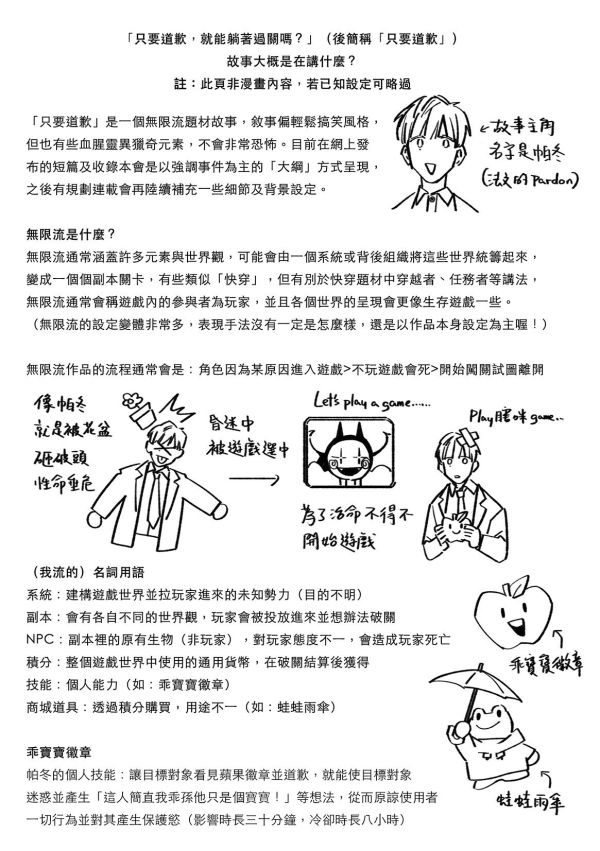 「只要道歉，就能躺著過關嗎？」（後簡稱「只要道歉」）
故事大概是在講什麼？
註：此頁非漫畫內容，若已知設定可略過
「只要道歉」是一個無限流題材故事，敘事偏輕鬆搞笑風格，
但也有些血腥靈異獵奇元素，不會非常恐怖。目前在網上發
布的短篇及收錄本會是以強調事件為主的「大綱」方式呈現，
之後有規劃連載會再陸續補充一些細節及背景設定。
←故事主角
名字是帕冬
(法文的Pardon)
無限流是什麼？
無限流通常涵蓋許多元素與世界觀，可能會由一個系統或背後組織將這些世界統籌起來，
變成一個個副本關卡，有些類似「快穿」，但有別於快穿題材中穿越者、任務者等講法，
無限流通常會稱遊戲內的參與者為玩家，並且各個世界的呈現會更像生存遊戲一些。
（無限流的設定變體非常多，表現手法沒有一定是怎麼樣，還是以作品本身設定為主喔！）
無限流作品的流程通常會是：角色因為某原因進入遊戲>不玩遊戲會死>開始闖關試圖離開
像帕冬
就是被花盆
砸破頭
性命垂危
昏迷中
被遊戲選中
Let's play a game......
為了活命不得不
開始遊戲
Play瞎咪game..
（我流的）名詞用語
系統：建構遊戲世界並拉玩家進來的未知勢力（目的不明）
副本：會有各自不同的世界觀，玩家會被投放進來並想辦法破關
NPC：副本裡的原有生物（非玩家），對玩家態度不一，會造成玩家死亡
積分：整個遊戲世界中使用的通用貨幣，在破關結算後獲得
技能：個人能力（如：乖寶寶徽章）
商城道具：透過積分購買，用途不一（如：蛙蛙雨傘）
乖寶寶徽章
蛙蛙雨傘
乖寶寶徽章
帕冬的個人技能：讓目標對象看見蘋果徽章並道歉，就能使目標對象
迷惑並產生「這人簡直我乖孫他只是個寶寶！」等想法，從而原諒使用者
一切行為並對其產生保護慾（影響時長三十分鐘，冷卻時長八小時）